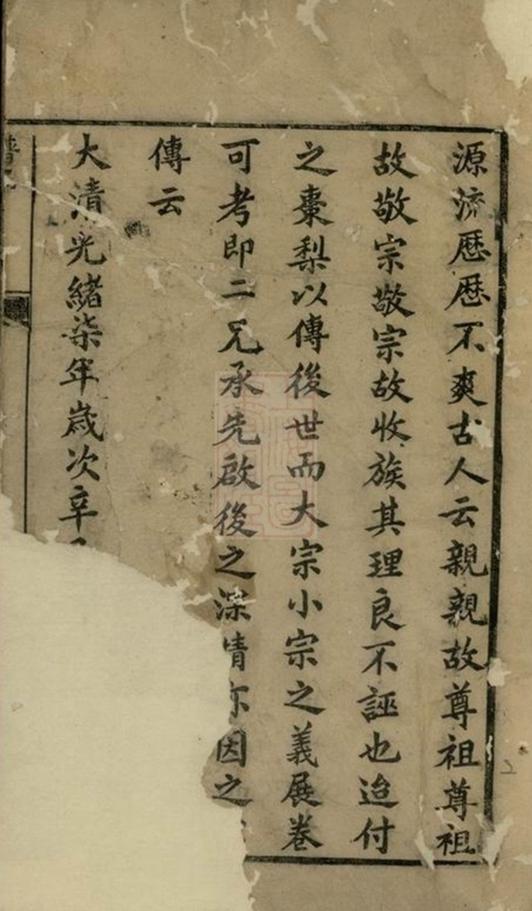 源流歷歷不爽古人云親親故尊祖尊祖
故敬宗敬宗故收族其理良不誣也迨付
之棗梨以傳後世而大宗小宗之義展卷
可考即二兄承先啟後之深情亦因之
傳云
大清光緒柒年歲次辛